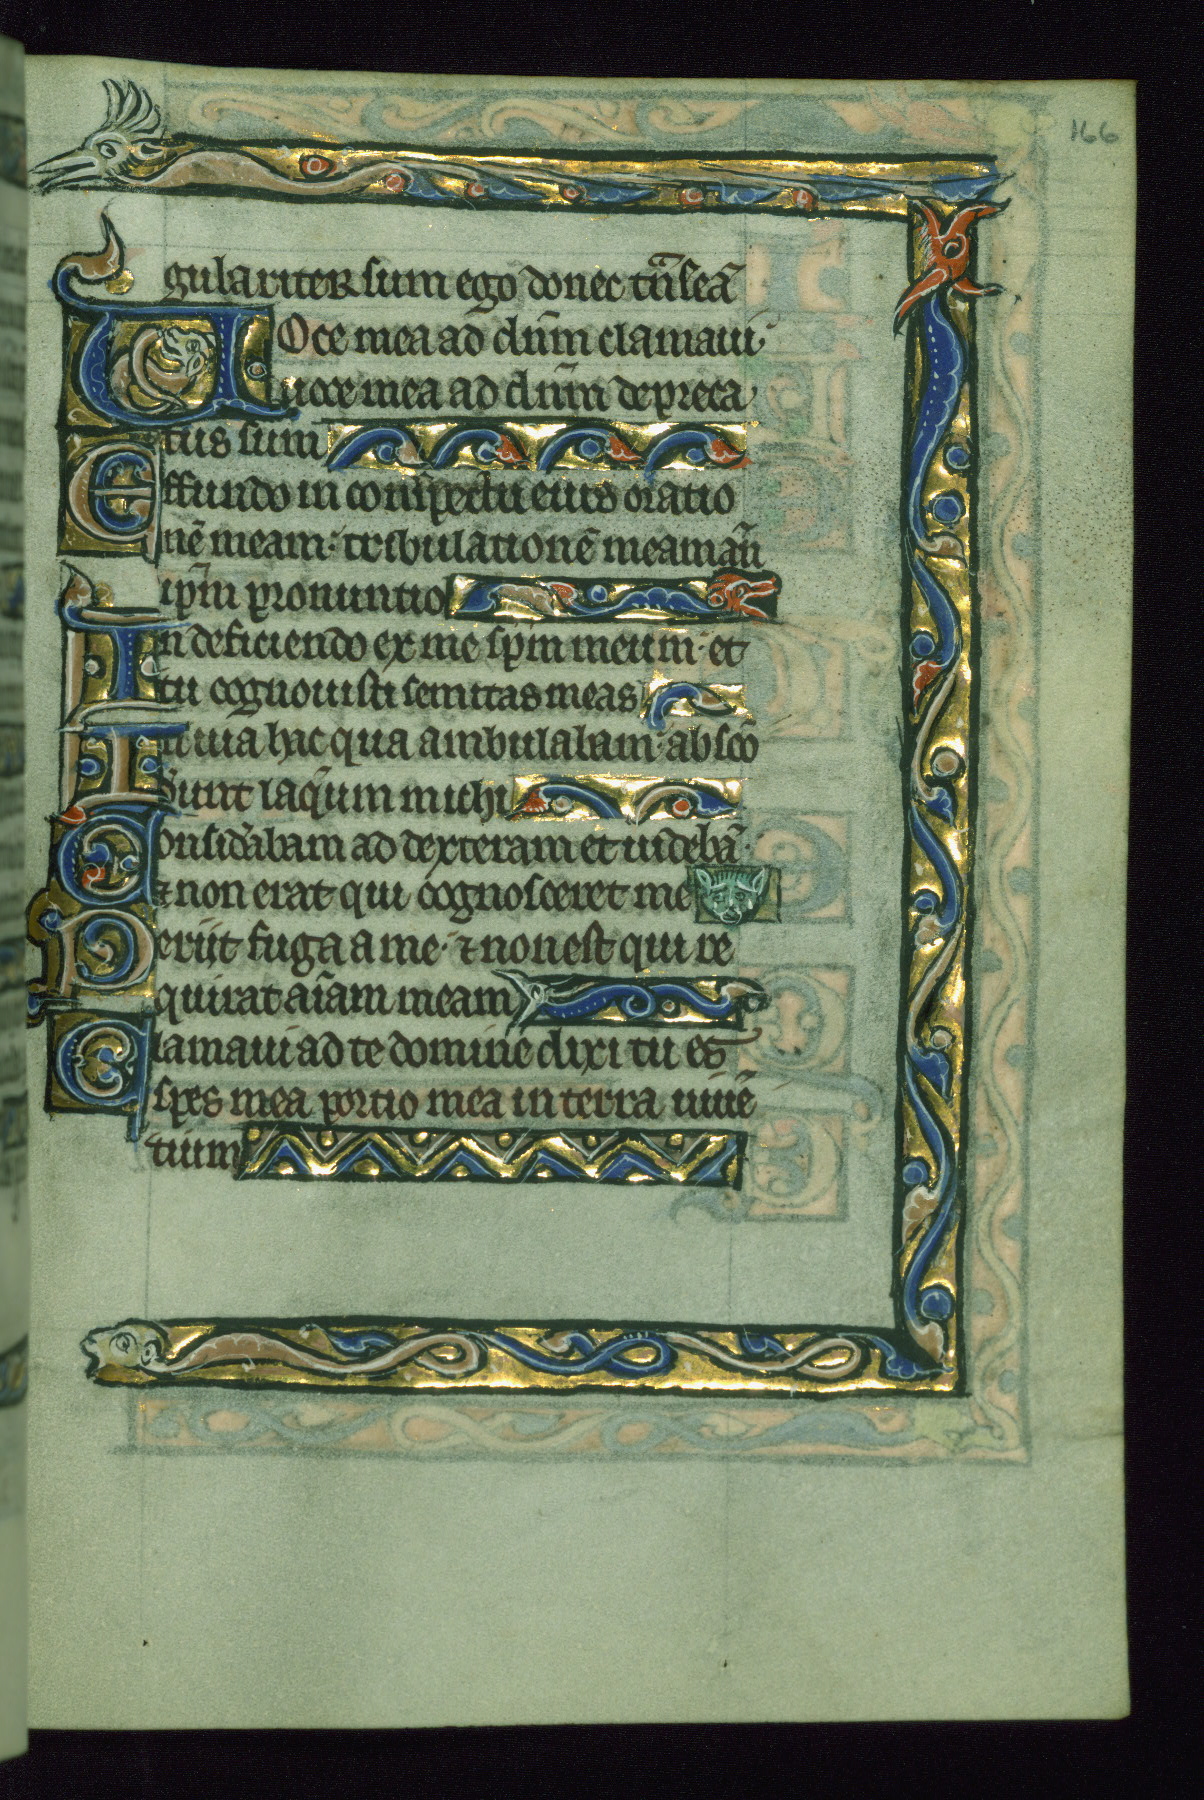 166
gulariter sum ego donec tn̄seā
Uoce mea ad dn̄m clamaui·
uoce mea ad dn̄m depreca
tus sum
Effundo in conspectu eius oratio
nē meam· tribulationē meam an̄
ip̄m pronuntio
In deficiendo ex me sp̄m meum· et
tu cognouisti semitas meas
In uia hac qua ambulabam· absco
nd'unt laq̄um michi
Consid'abam ad dexteram et uidebā·
⁊ non erat qui cognosceret me
Periit fuga a me· ⁊ non est qui re
quirat aīam meam
Clamaui ad te domine dixi tu es
spes mea portio mea in terra uiuē
tium